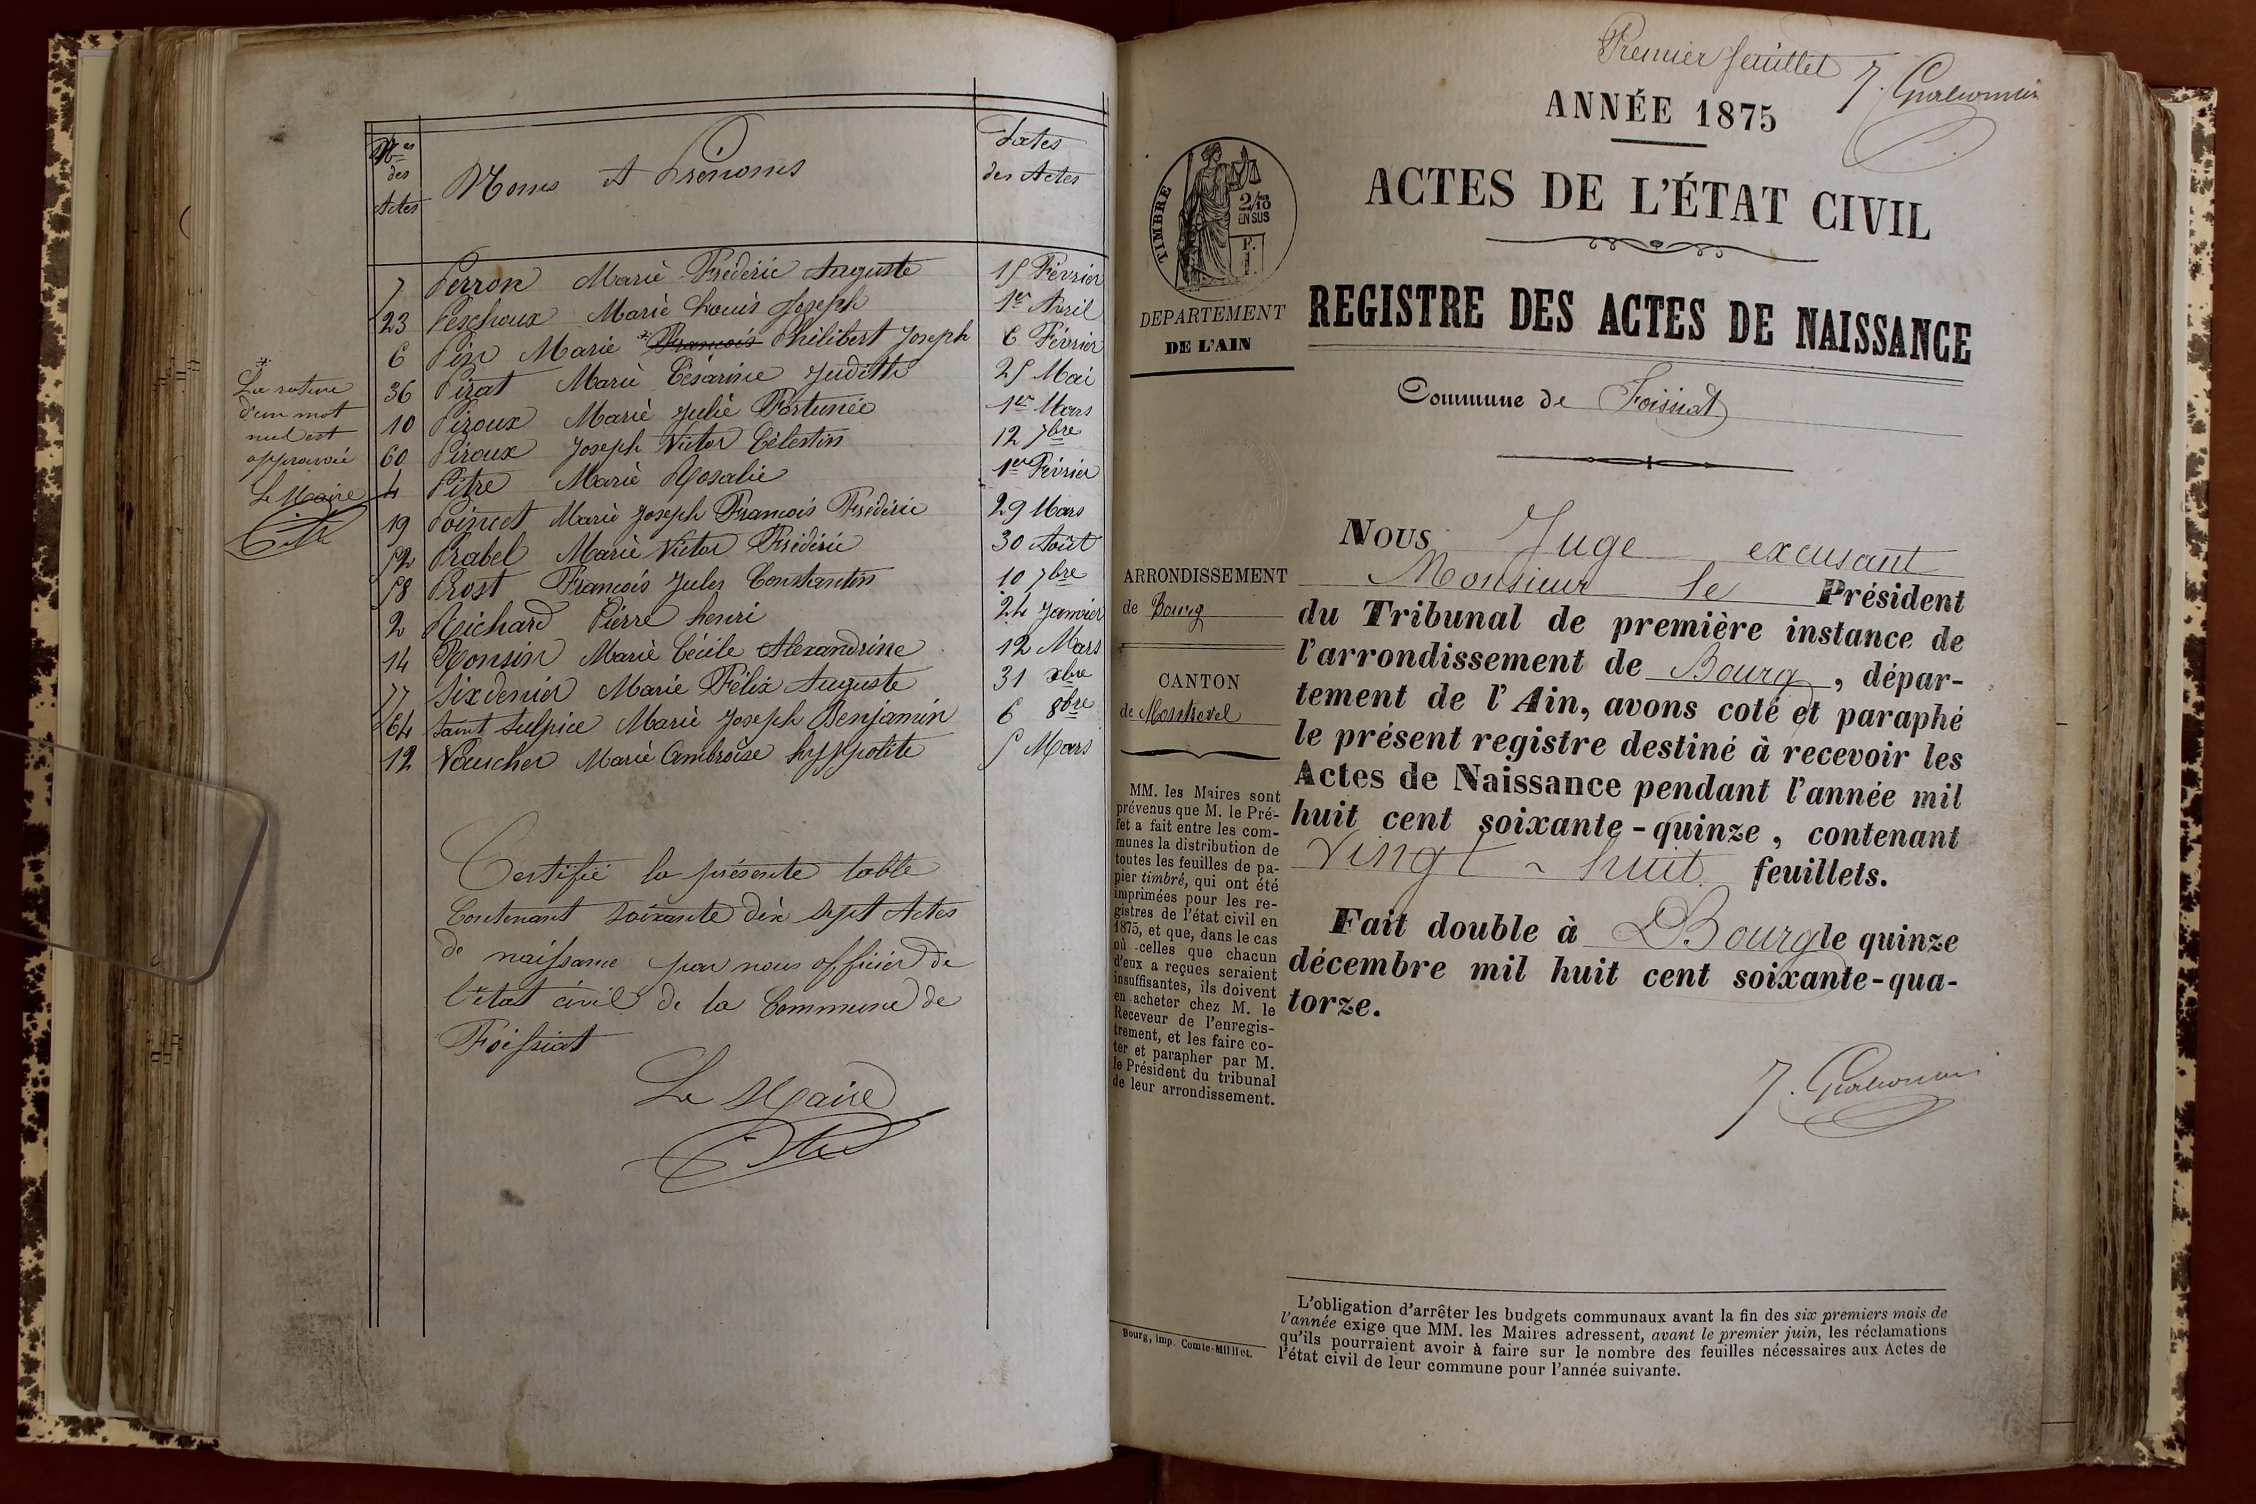 Nos
des
Actes
Noms et Prénoms
Dates
des Actes
7 Perron Marie Frédéric Auguste 15 Février
23 Peschoux Marie Louis Joseph 1er Avril
6 Pin Marie * François Philibert Joseph 6 Février
36 Pirat Marie Césarine Judith 25 Mai
10 Piroux Marie Julie Fortunée 1er Mars
60 Piroux Joseph Victor Célestin 12 7bre
4 Pitre Marie Rosalie 1er Février
19 Poincet Marie Joseph François Frédéric 29 Mars
52 Prabel Marie Victor Frédéric 30 Août
58 Prost François Jules Constantin 10 7bre
2 Richard Pierre henri 24 Janvier
14 Ronsin Marie Cécile Alexandrine 12 Mars
77 Sixdenier Marie Félix Auguste 31 xbre
64 Saint Sulpice Marie Joseph Benjamin 6 8bre
12 Vouscher Marie Ambroise hyppolite 5 Mars
*
La rature
d'un mot
nul est
approuvée
Le Maire
Certifié la présente table
Contenant soixante dix sept Actes
de naissance par nous officier de
l'état civil de la Commune de
Foissiat
Le Maire
Premier feuillet
ANNÉE 1875
ACTES DE L'ÉTAT CIVIL
REGISTRE DES ACTES DE NAISSANCE
Commune de Foissiat
TIMBRE
2/10
EN SUS
DEPARTEMENT
DE L'AIN
ARRONDISSEMENT
de Bourg
CANTON
de Montrevel
MM. les Maires sont
prévenus que M. le Pré-
fet a fait entre les com-
munes la distribution de
toutes les feuilles de pa-
pier timbré, qui ont été
imprimées pour les re-
gistres de l'état civil en
1875, et que, dans le cas
où celles que chacun
d'eux a reçues seraient
insuffisantes, ils doivent
en acheter chez M. le
Receveur de l'enregis-
trement, et les faire co-
ter et parapher par M.
le Président du tribunal
de leur arrondissement.
Bourg, imp. Comte-Milliet.
NOUS Juge excusant
Monsieur le Président
du Tribunal de première instance de
l'arrondissement de Bourg, dépar-
tement de l'Ain, avons coté et paraphé
le présent registre destiné à recevoir les
Actes de Naissance pendant l'année mil
huit cent soixante-quinze, contenant
Vingt-huit feuillets.
Fait double à Bourg le quinze
décembre mil huit cent soixante-qua-
torze.
L'obligation d'arrêter les budgets communaux avant la fin des six premiers mois de
l'année exige que MM. les Maires adressent, avant le premier juin, les réclamations
qu'ils pourraient avoir à faire sur le nombre des feuilles nécessaires aux Actes de
l'état civil de leur commune pour l'année suivante.